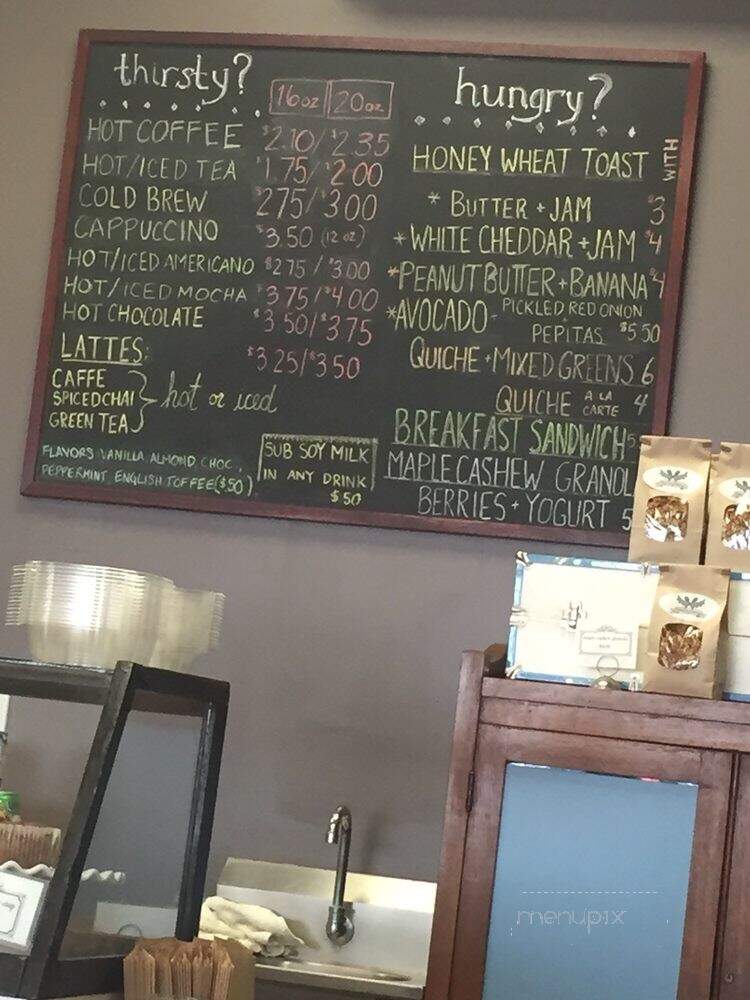 thirsty?
16oz 20oz
HOT COFFEE $2.10/$2.35
HOT/ICED TEA $1.75/$2.00
COLD BREW $275/$3.00
CAPPUCCINO $3.50 (12 oz)
HOT/ICED AMERICANO $2.75/$3.00
HOT/ICED MOCHA $3.75/$4.00
HOT CHOCOLATE $3.50/$3.75
LATTES: $3.25/$3.50
CAFFE
SPICED CHAI
GREEN TEA
hot or iced
FLAVORS: VANILLA, ALMOND, CHOC.,
PEPPERMINT, ENGLISH TOFFEE ($.50)
SUB SOY MILK
IN ANY DRINK
$.50
hungry?
HONEY WHEAT TOAST WITH
* BUTTER + JAM $3
* WHITE CHEDDAR + JAM $4
* PEANUT BUTTER + BANANA $4
* AVOCADO - PICKLED RED ONION
PEPITAS $5.50
QUICHE + MIXED GREENS 6
QUICHE A LA CARTE 4
BREAKFAST SANDWICH 5
MAPLE CASHEW GRANOL
BERRIES + YOGURT 5
menupix